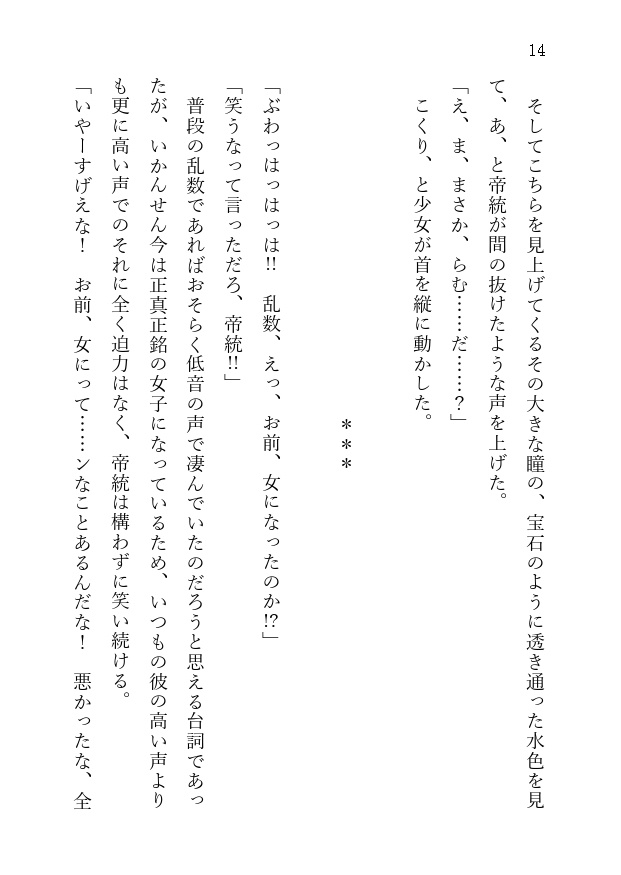 14
　そしてこちらを見上げてくるその大きな瞳の、宝石のように透き通った水色を見
て、あ、と帝統が間の抜けたような声を上げた。
「え、ま、まさか、らむ……だ……？」
　こくり、と少女が首を縦に動かした。
＊＊＊
「ぶわっはっはっは!!　乱数、えっ、お前、女になったのか!?」
「笑うなって言っただろ、帝統!!」
　普段の乱数であればおそらく低音の声で凄んでいたのだろうと思える台詞であっ
たが、いかんせん今は正真正銘の女子になっているため、いつもの彼の高い声より
も更に高い声でのそれに全く迫力はなく、帝統は構わずに笑い続ける。
「いやーすげえな！　お前、女にって……ンなことあるんだな！　悪かったな、全